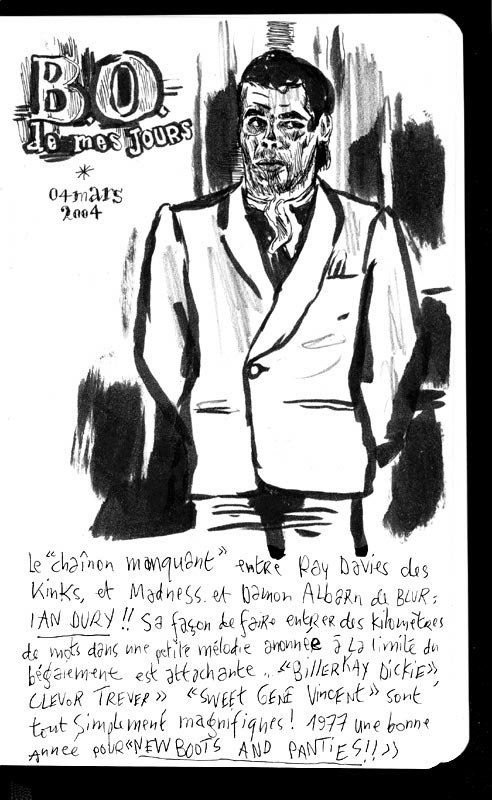 B.O.
de mes JOURS
*
04 mars
2004
Le "chaînon manquant" entre Ray Davies des
Kinks, et Madness. et Damon Albarn de BLUR:
IAN DURY!! Sa façon de faire entrer des kilomètres
de mots dans une petite mélodie anonnée à la limite du
bégaiement est attachante... "BillerKAY Dickie"
CLEVOR TREVER" "SWEET GENE Vincent" sont
tout simplement magnifiques! 1977 une bonne
Année pour "NEW BOOTS AND PANTIES!!"